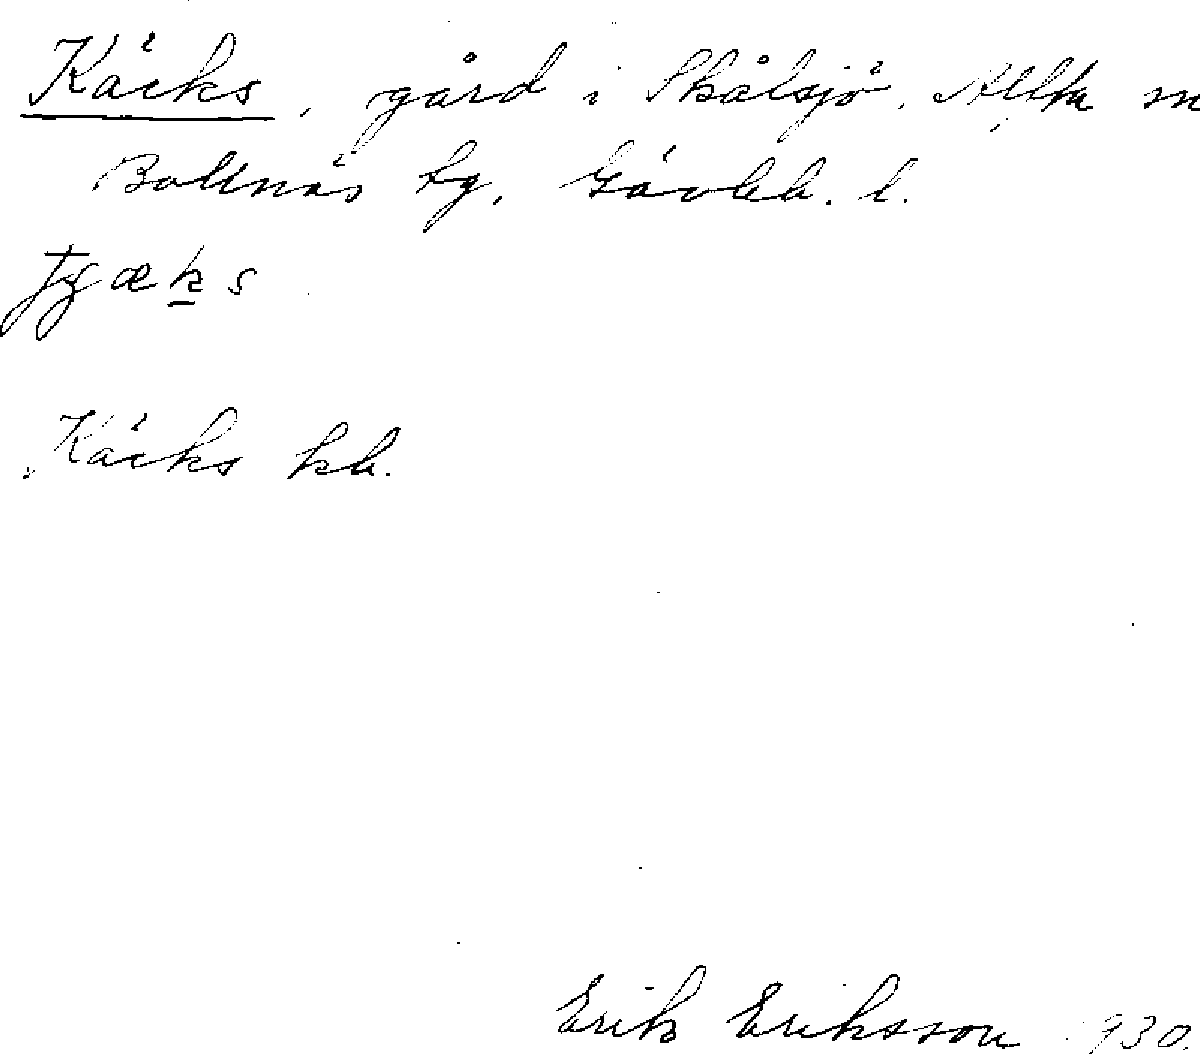 Käcks, gård i Skålsjö, Alfta sn
Bollnäs tg, Gävleb. l.
Käcks kb.
Erik Eriksson 1930.